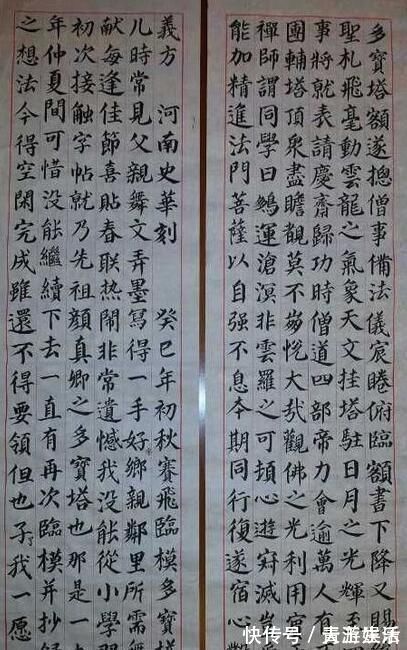 多寶塔額遂摠僧事備法儀宸睠俯臨額書下降又賜
聖札飛毫動雲龍之氣象天文挂塔駐日月之光輝至
事將就表請慶齋歸功時僧道四部帝力會逾萬人有
團輔塔頂衆盡瞻觀莫不崩悅大哉觀佛之光利用
禪師謂同學曰鵬運滄溟非雲羅之可頓心遊寂滅豈
能加精進法門菩薩以自强不息本期同行復遂宿心
義方 河南史華刻 癸巳年初秋賽飛臨模多寶塔
儿時常見父親舞文弄墨寫得一手好鄉親鄰里所需
献每逢佳節喜貼春联热鬧非常遺憾我没能從小學習
初次接触字帖就乃先祖顏真卿之多寶塔也那是一
年仲夏間可惜没能繼續下去一直有再次臨模并抄録
之想法今得空閑完成雖還不得要領但也了我一愿
快传号/青游娱乐